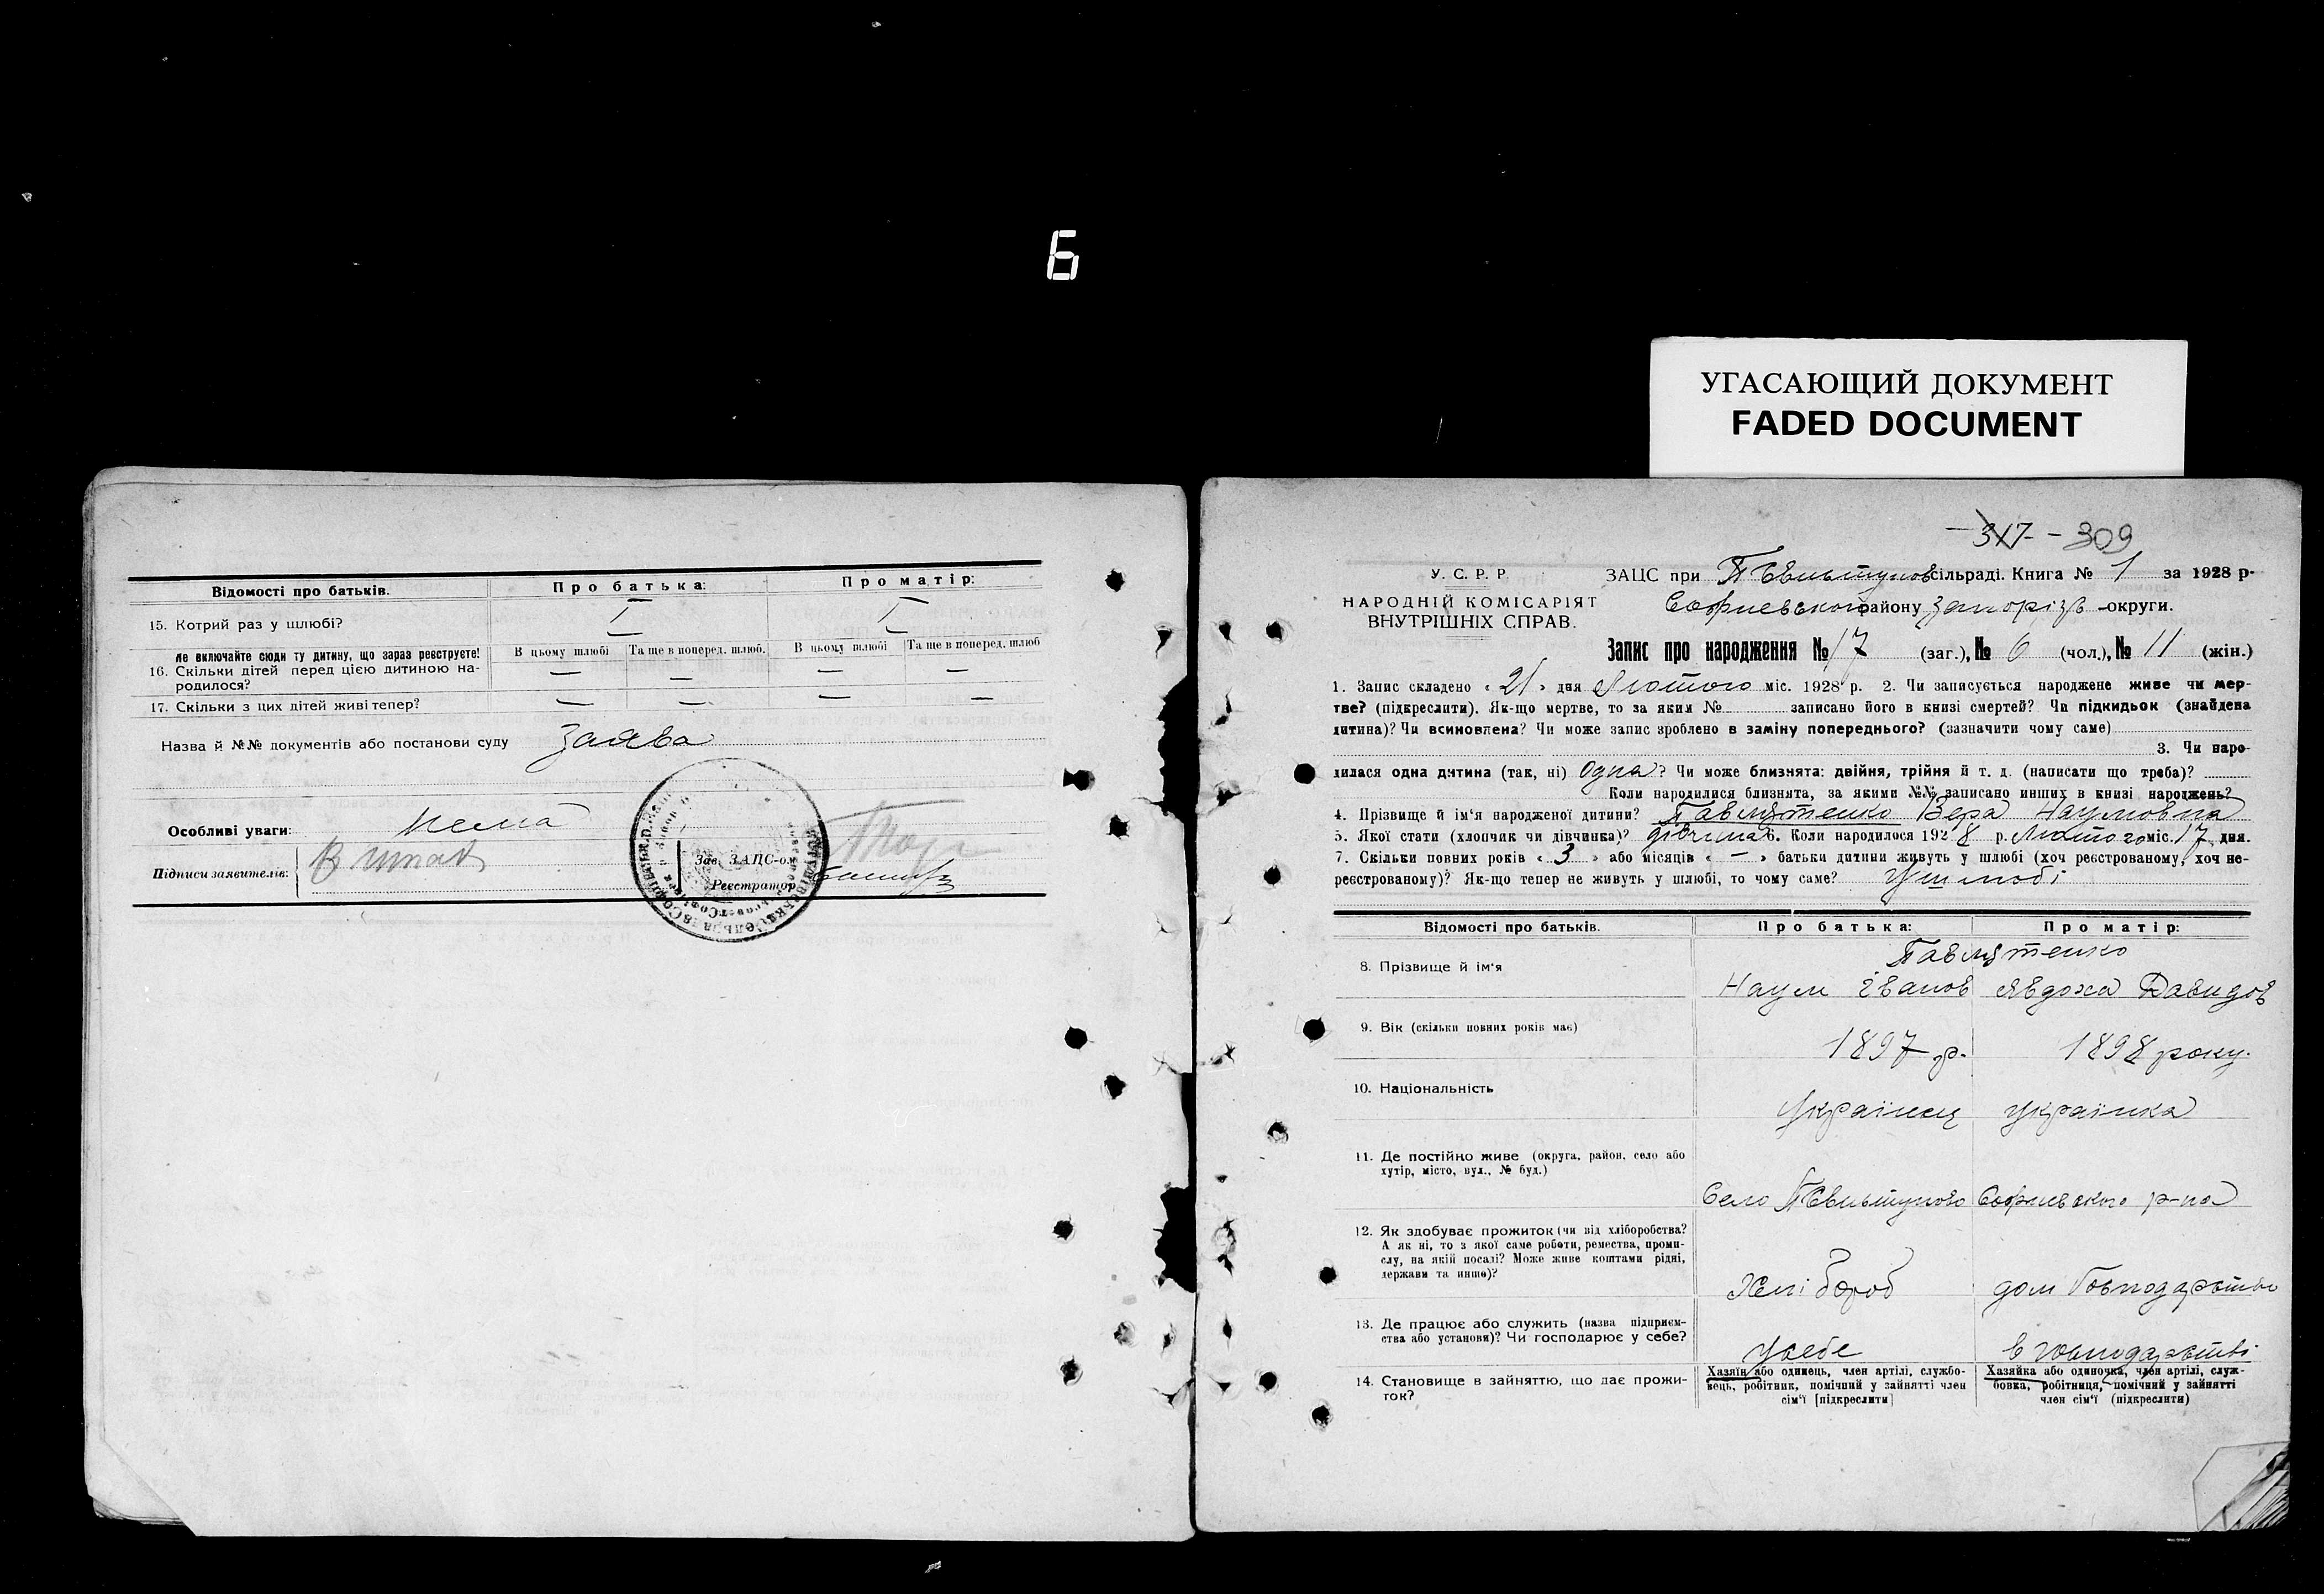 6
УГАСАЮЩИЙ ДОКУМЕНТ
FADED DOCUMENT
Відомості про батьків. Про батька: Про матір:
15. Котрий раз у шлюбі? I I
Не включайте сюди ту дитину, що зараз реєструєте! В цьому шлюбі Та ще в поперед. шлюб. В цьому шлюбі Та ще в поперед. шлюб
16. Скільки дітей перед цією дитиною на- — — — —
родилося?
17. Скільки з цих дітей живі тепер? — — — —
Назва й №№ документів або постанови суду Заява
Особливі уваги: Нема
Підписи заявителів:
Зав. ЗАЦС-ом
Реєстратор
— 317 - — 309
У. С. Р. Р.
НАРОДНІЙ КОМІСАРІЯТ
ВНУТРІШНІХ СПРАВ.
ЗАЦС при П Євпьтунов сільраді. Книга № 1 за 1928 р.
Софиевського району Запорізь округи.
Запис про народження № 17 (заг.), № 6 (чол.), № 11 (жін.)
1. Запис складено « 21 » дня Лютого міс. 1928 р. 2. Чи записується народжене живе чи мер-
тве? (підкреслити). Як-що мертве, то за яким № записано його в книзі смертей? Чи підкидьок (знайдена
дитина)? Чи всиновлена? Чи може запис зроблено в заміну попереднього? (зазначити чому саме)
3. Чи наро-
дилася одна дитина (так, ні) Одна? Чи може близнята: двійня, трійня й т. д. (написати що треба)?
Коли народилися близнята, за якими №№ записано инших в книзі народжень?
4. Прізвище й ім'я народженої дитини? Павлютенко Вера Наумовна
5. Якої стати (хлопчик чи дівчинка)? дівчина 6. Коли народилося 1928 р. Лютого міс. 17 дня.
7. Скільки повних років « 3 » або місяців « — » батьки дитини живуть у шлюбі (хоч реєстрованому, хоч не-
реєстрованому)? Як-що тепер не живуть у шлюбі, то чому саме? У шлюбі
Відомості про батьків. Про батька: Про матір:
Павлютенко
8. Прізвище й ім'я
Наум Іванов Явдоха Давидов
9. Вік (скільки повних років має)
1897 р. 1898 року.
10. Національність
Українец Українка
11. Де постійно живе (округа, район, село або
хутір, місто, вул., № буд.)
Село Софиевского р-на
12. Як здобуває прожиток (чи від хліборобства?
А як ні, то з якої саме роботи, ремества, проми-
слу, на якій посаді? Може живе коштами рідні,
держави та инше)?
Хлібороб дом Господарство
13. Де працює або служить (назва підприєм-
ства або установи)? Чи господарює у себе?
У себе в господарстві
14. Становище в зайняттю, що дає прожи-
ток?
Хазяїн або одинець, член артілі, службо-
вець, робітник, помічний у зайнятті член
сім'ї [підкреслити]
Хазяйка або одиночка, член артілі, служ-
бовка, робітниця, помічний у зайнятті
член сім'ї (підкреслити)